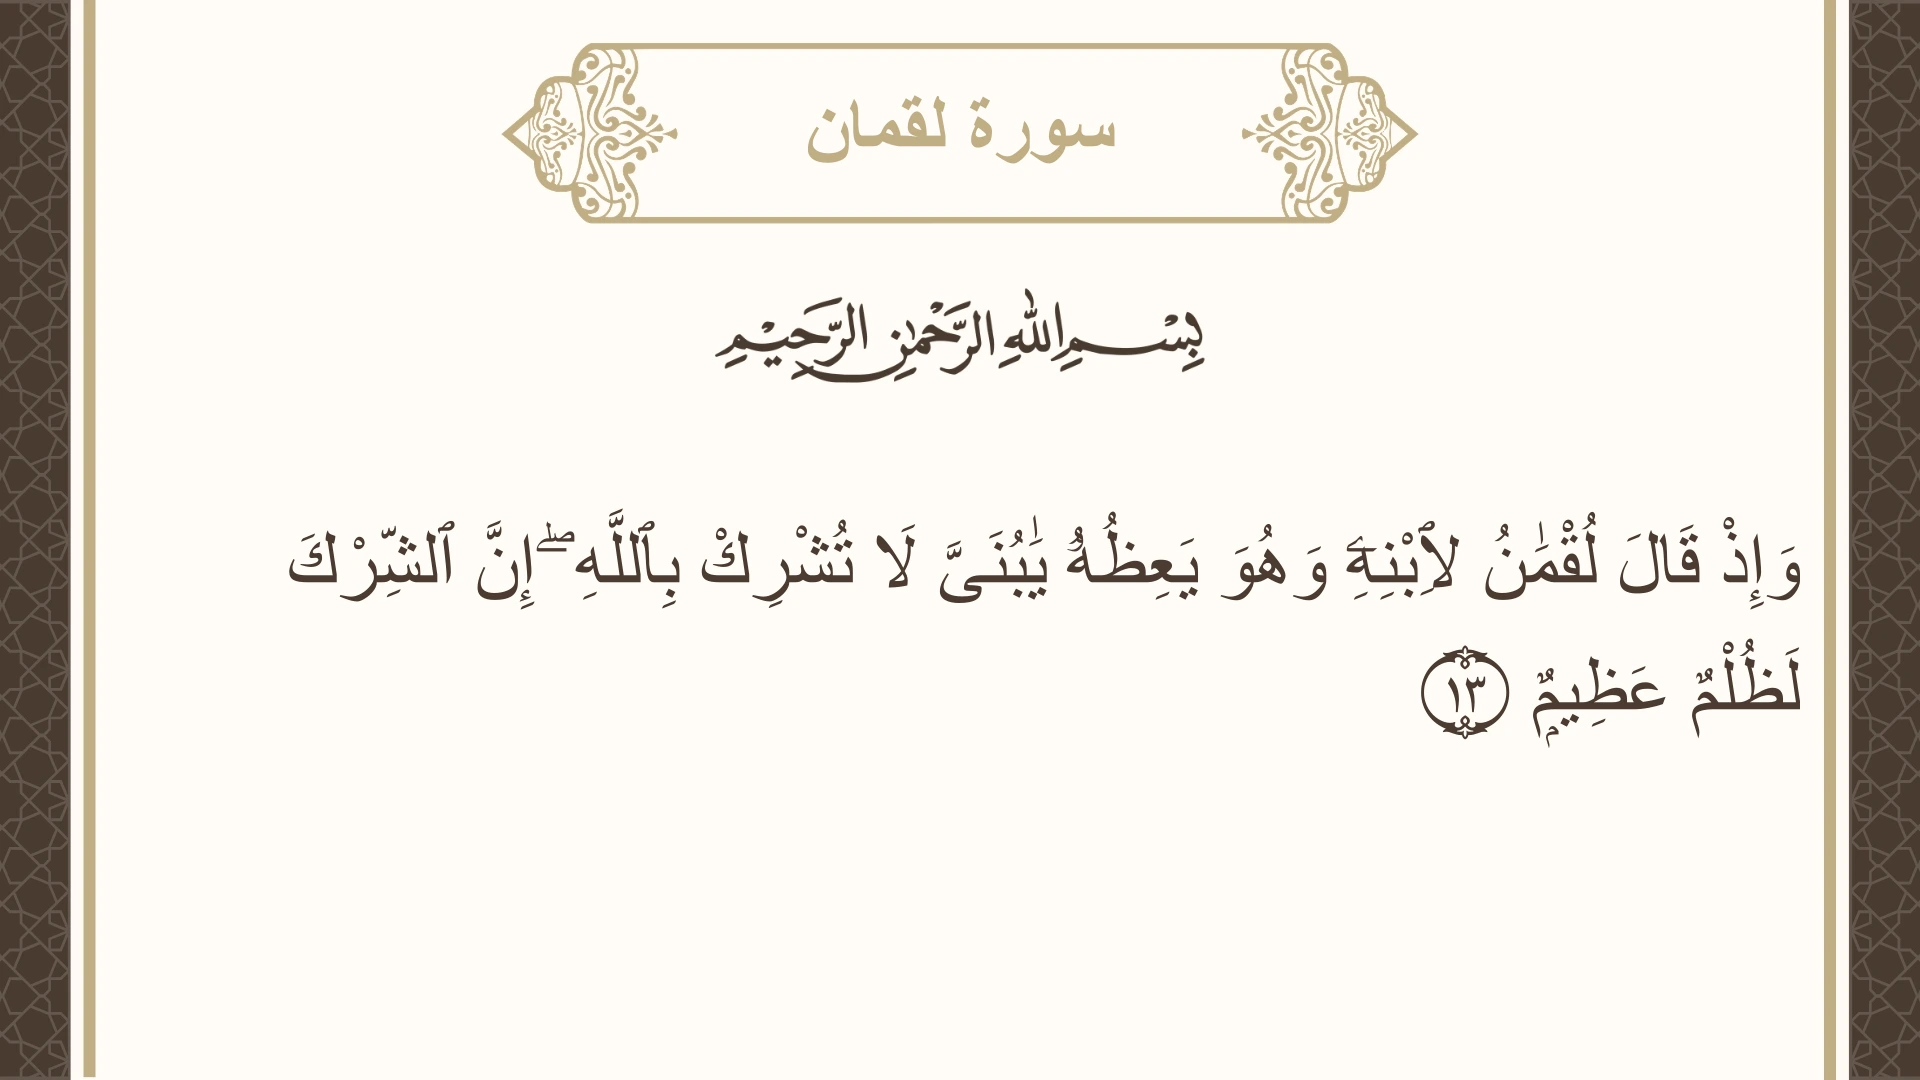 سورة لقمان
بِسْمِ اللهِ الرَّحْمٰنِ الرَّحِيْمِ
وَإِذْ قَالَ لُقْمَٰنُ لِٱبْنِهِۦ وَهُوَ يَعِظُهُۥ يَٰبُنَىَّ لَا تُشْرِكْ بِٱللَّهِ ۖ إِنَّ ٱلشِّرْكَ
لَظُلْمٌ عَظِيمٌۭ ١٣